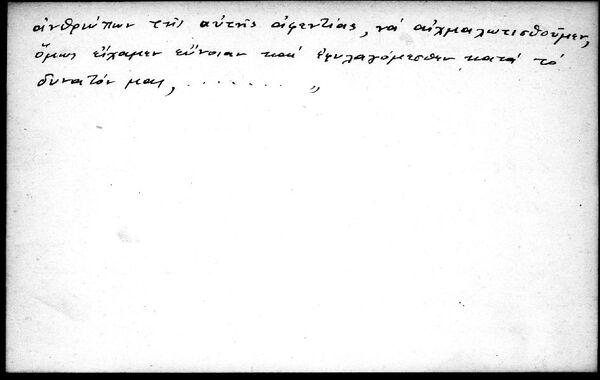 ἀνθρώπων τῆς αὐτῆς ἀφεντίας, νά αἰχμαλωτισθοῦμεν,
ὅμως εἴχαμεν εὔνοιαν καί ἐφυλαγόμεσθεν κατά τό
δυνατόν μας, . . . . . . . „